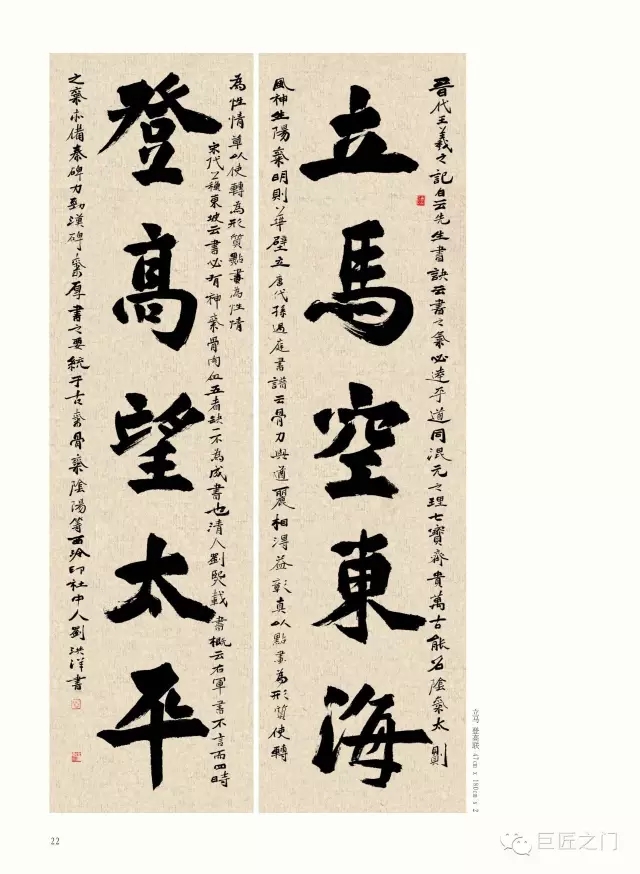 晉代王羲之記白云先生書訣云書之氣必達乎道同混元之理七寶齊貴萬古能名陰氣太則
立馬空東海
風神生陽氣明則華壁立唐代孫過庭書譜云骨力與遒麗相得益彰真以點畫為形質使轉
為性情草以使轉為形質點畫為性情
宋代蘇東坡云書必有神氣骨肉血五者缺一不為成書也清人劉熙載書概云右軍書不言而四時
登高望太平
之氣亦備秦碑力勁漢碑氣厚書之要統于古氣骨氣陰陽等西泠印社中人劉洪洋書
立马 登高联 47cm x 180cm x 2
22
巨匠之门